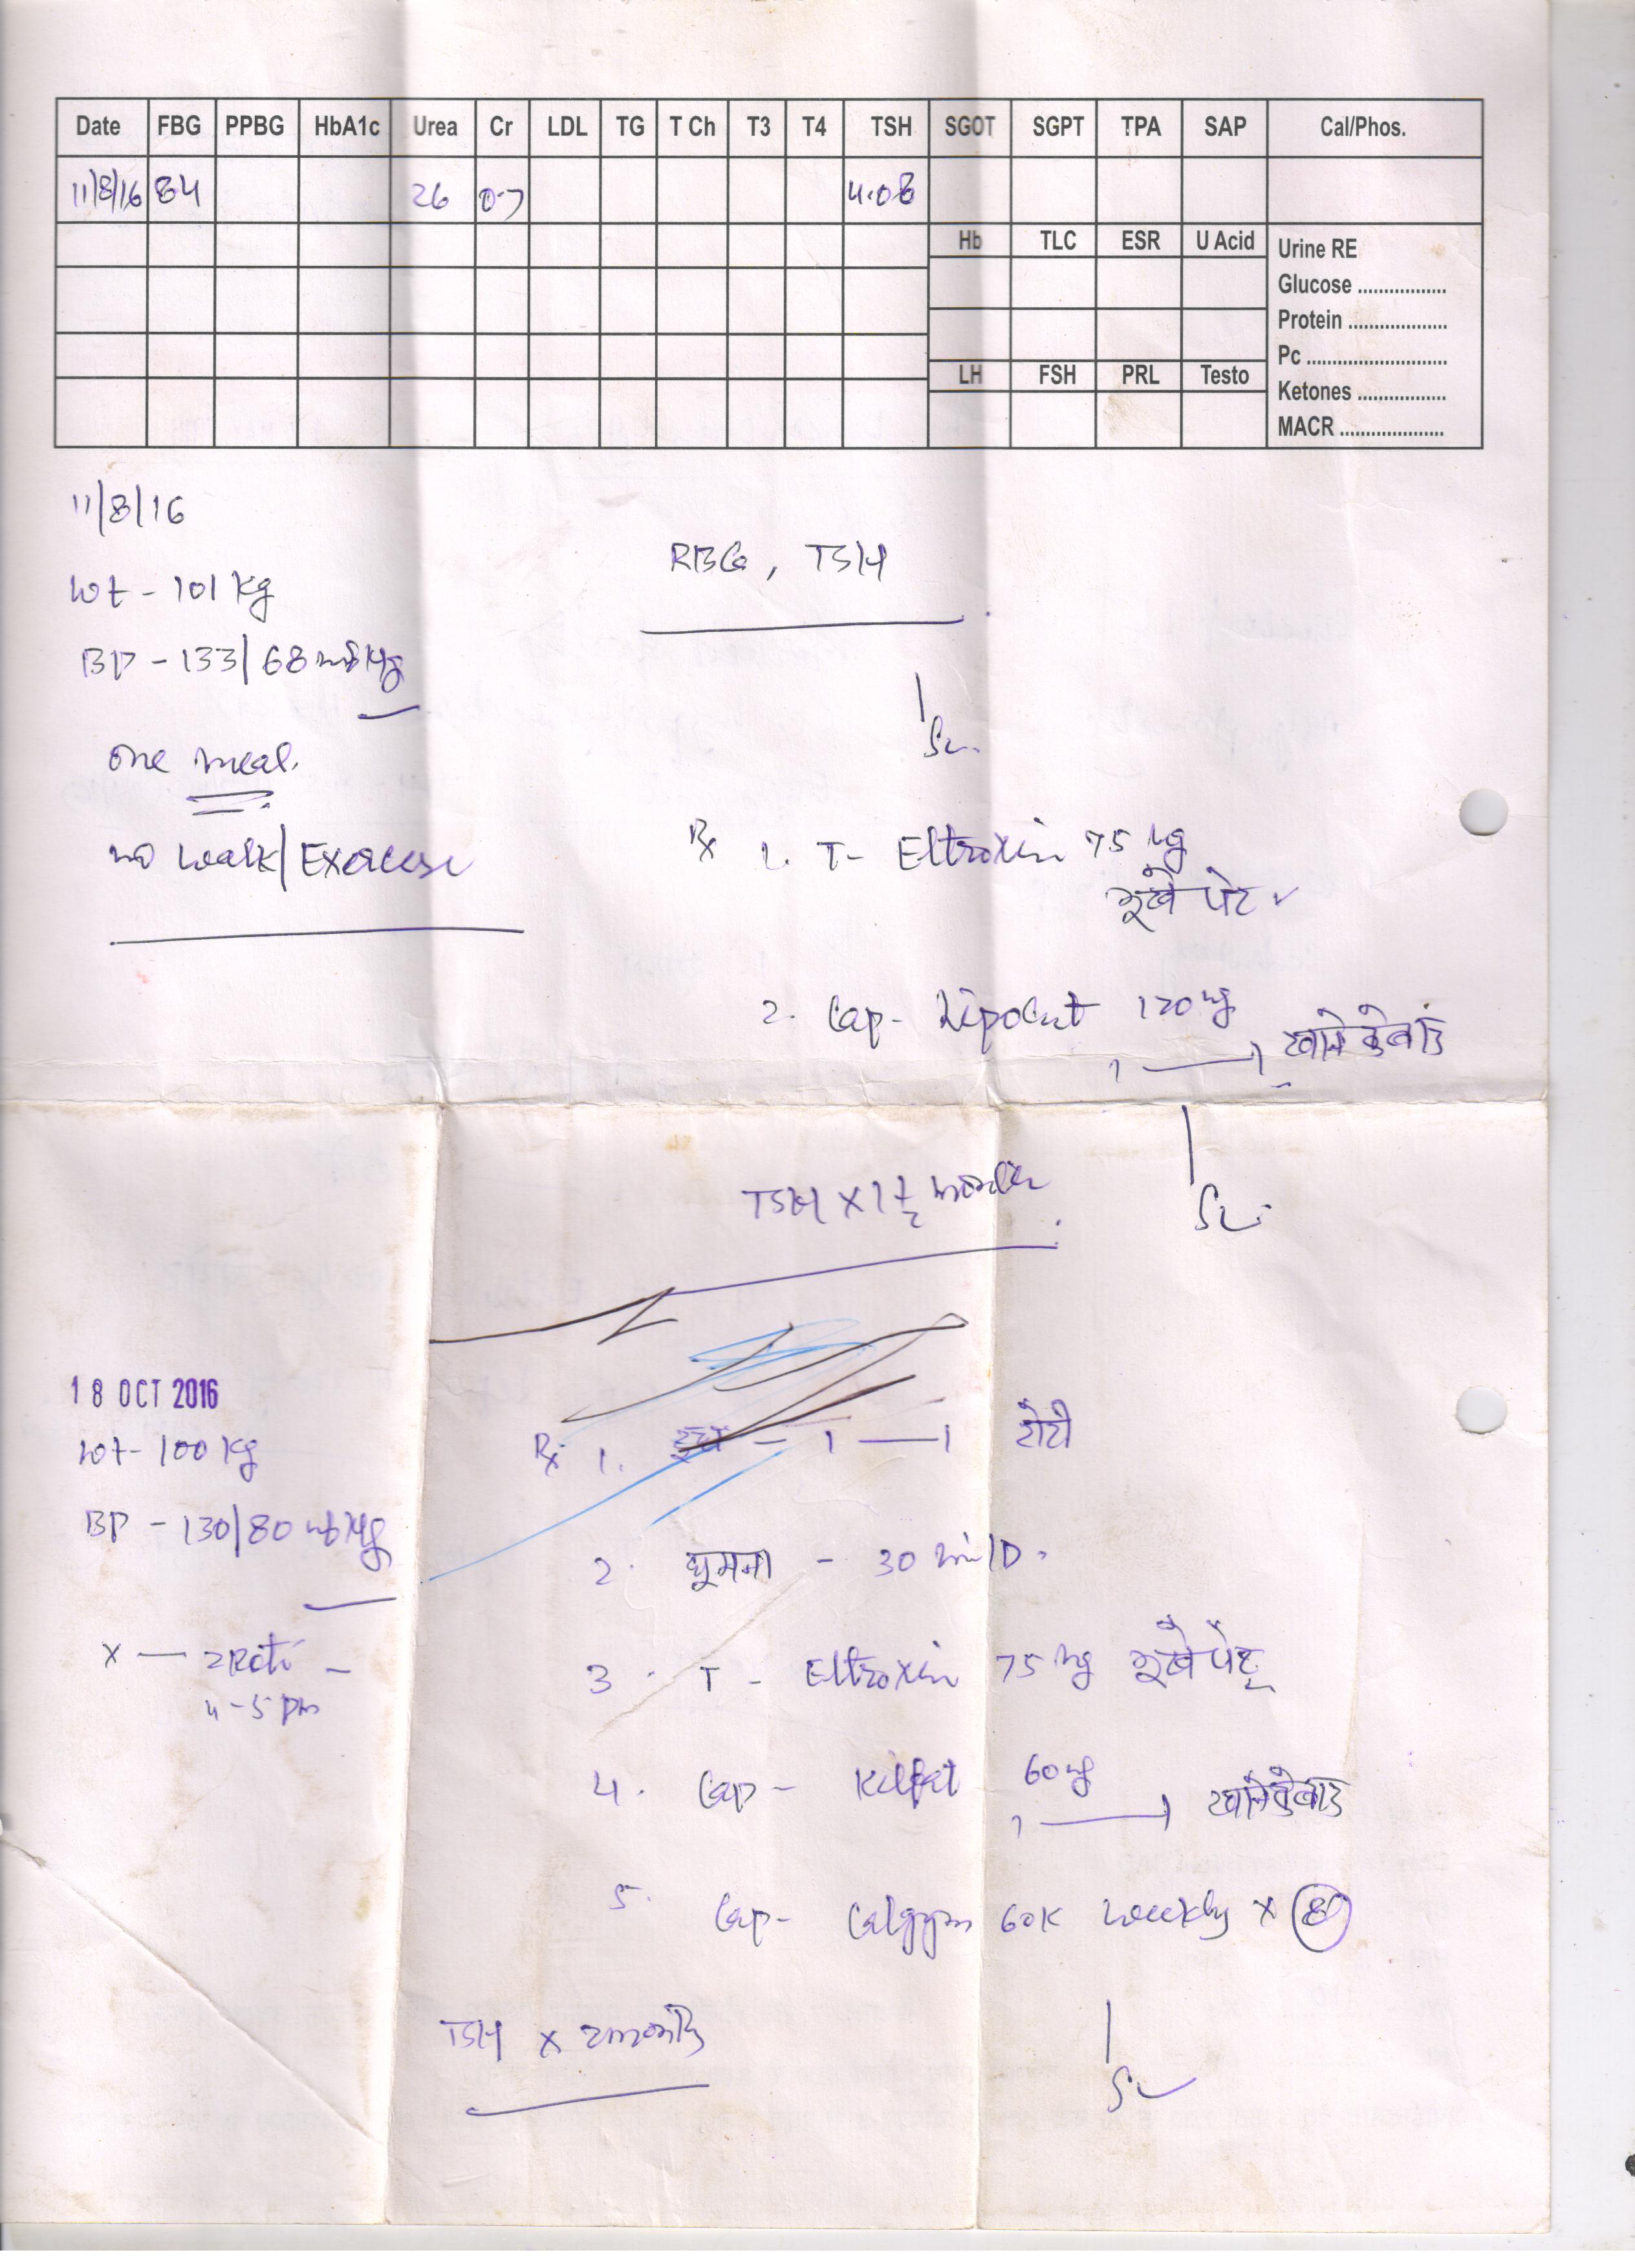 Date FBG PPBG HbA1c Urea Cr LDL TG T Ch T3 T4 TSH SGOT SGPT TPA SAP Cal/Phos.
11/8/16 84 26 0.7 4.08
Hb TLC ESR U Acid
Urine RE
Glucose .................
Protein ...................
Pc ...........................
LH FSH PRL Testo
Ketones .................
MACR ....................
11/8/16
RBG, TSH
wt - 101 kg
BP - 133/68 mmHg
one meal.
no walk/Exercise
Rx 1. T- Eltroxin 75 mg
भूखे पेट
2. Cap- Lipocut 120 mg
1 — 1 खाने के बाद
TSH x 1 1/2 month
18 OCT 2016
wt - 100 kg
Rx 1. — 1 — 1 रोटी
BP - 130/80 mmHg
2. घूमना - 30 min/D.
x — 2 Roti -
4-5 pm
3. T - Eltroxin 75 mg भूखे पेट
4. Cap - Kilfat 60 mg
1 — 1 खाने के बाद
5. Cap- 60K weekly x 8
TSH x 2 months